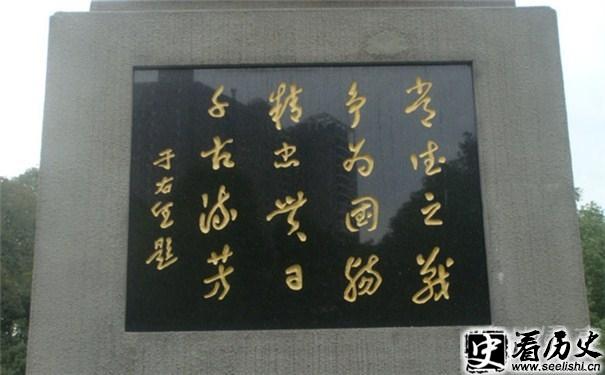 常德之戰
爭為國殤
精忠貫日
千古流芳
于右任題
史
看历史
www.seelishi.cn